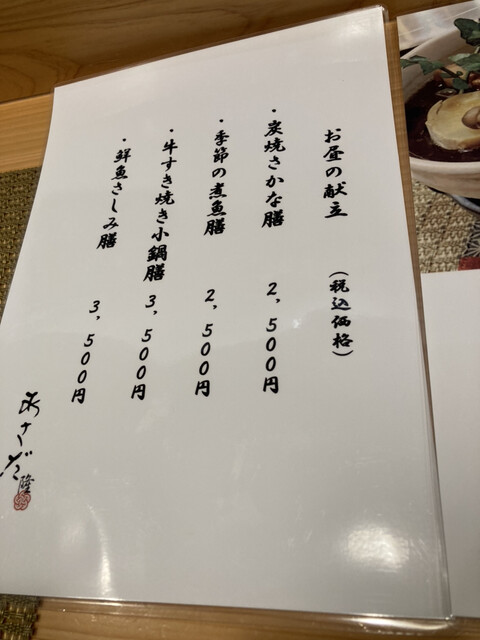 お昼の献立 (税込価格)
・炭焼さかな膳 2,500円
・季節の煮魚膳 2,500円
・牛すき焼き小鍋膳 3,500円
・鮮魚さしみ膳 3,500円
あさだ
隆